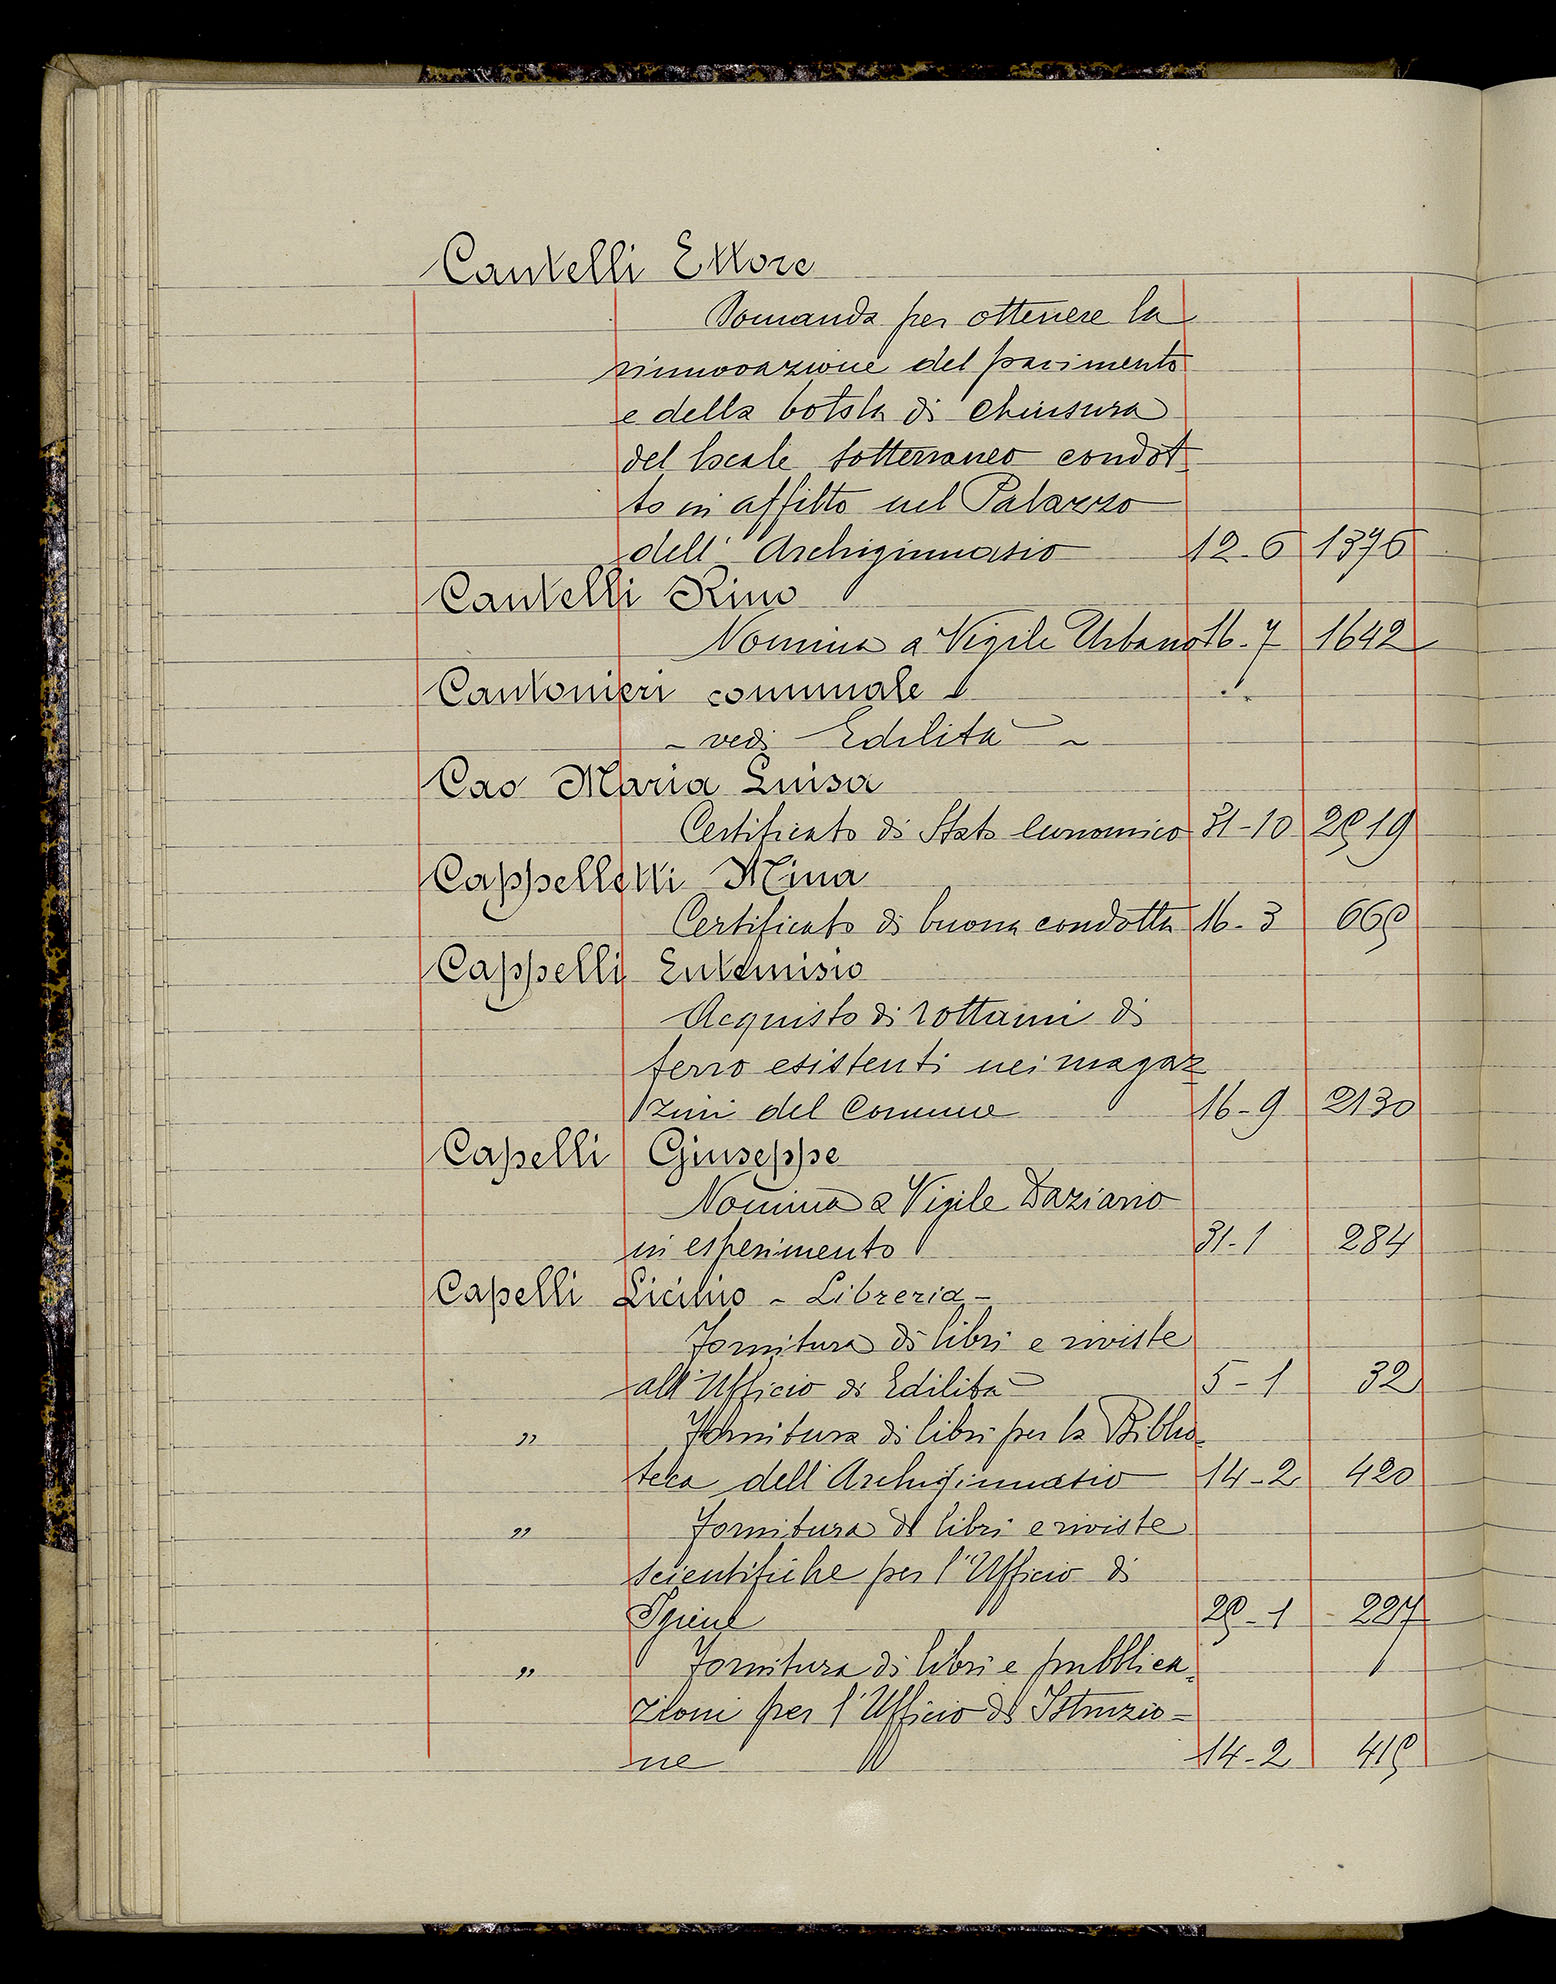 Cantelli Ettore
Domanda per ottenere la
rinnovazione del pavimento
e della botola di chiusura
del locale sotterraneo condot
to in affitto nel Palazzo
dell'Archiginnasio 12-6 1376
Cantelli Rino
Nomina a Vigile Urbano 16-7 1642
Cantonieri comunale
- vedi Edilità -
Cao Maria Luisa
Certificato di Stato Economico 31-10 2519
Cappelletti Mina
Certificato di buona condotta 16-3 665
Cappelli Eutemisio
Acquisto di rottami di
ferro esistenti nei magaz
zini del Comune 16-9 2130
Capelli Giuseppe
Nomina a Vigile Daziario
in esperimento 31-1 284
Capelli Licinio - Libreria -
Fornitura di libri e riviste
all'Ufficio di Edilità 5-1 32
" Fornitura di libri per la Biblio-
teca dell'Archiginnasio 14-2 420
" Fornitura di libri e riviste
scientifiche per l'Ufficio di
Igiene 25-1 227
" Fornitura di libri e pubblica-
zioni per l'Ufficio di Istruzio-
ne 14-2 415